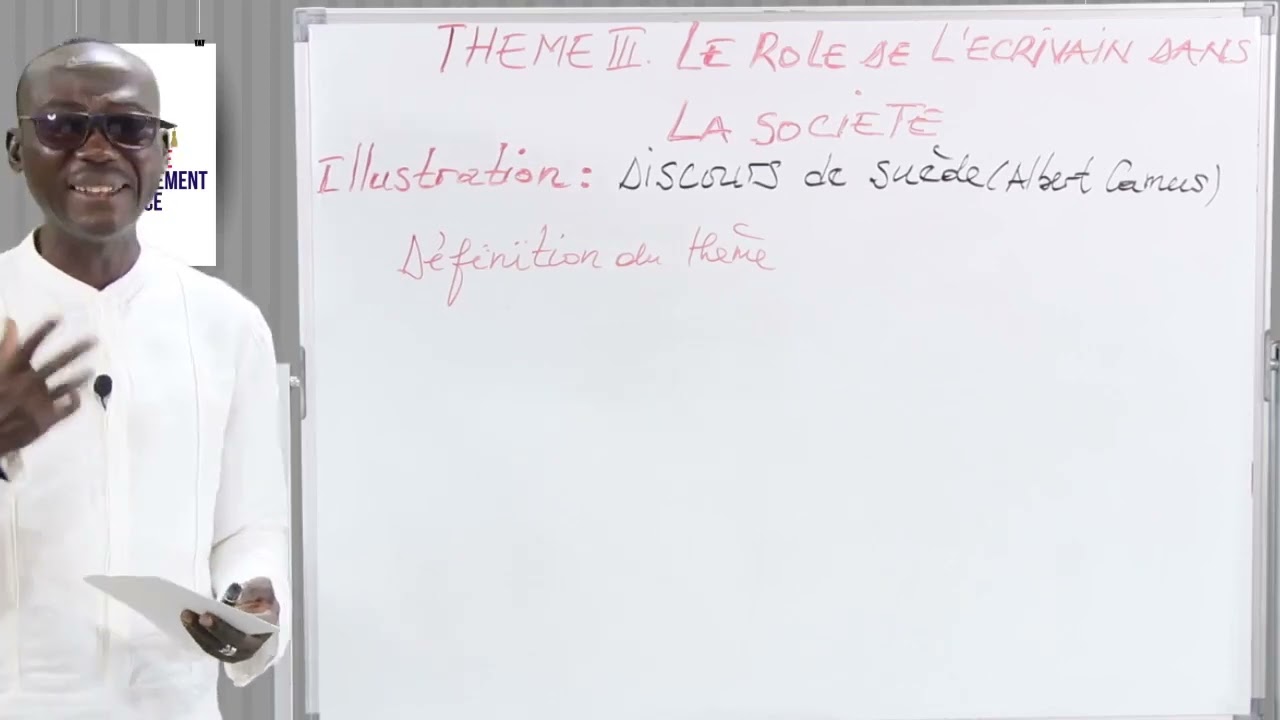 THEME III. LE ROLE DE L'ECRIVAIN DANS
LA SOCIETE
Illustration : DISCOURS de suède (Albert Camus)
Définition du thème
EMENT
CE